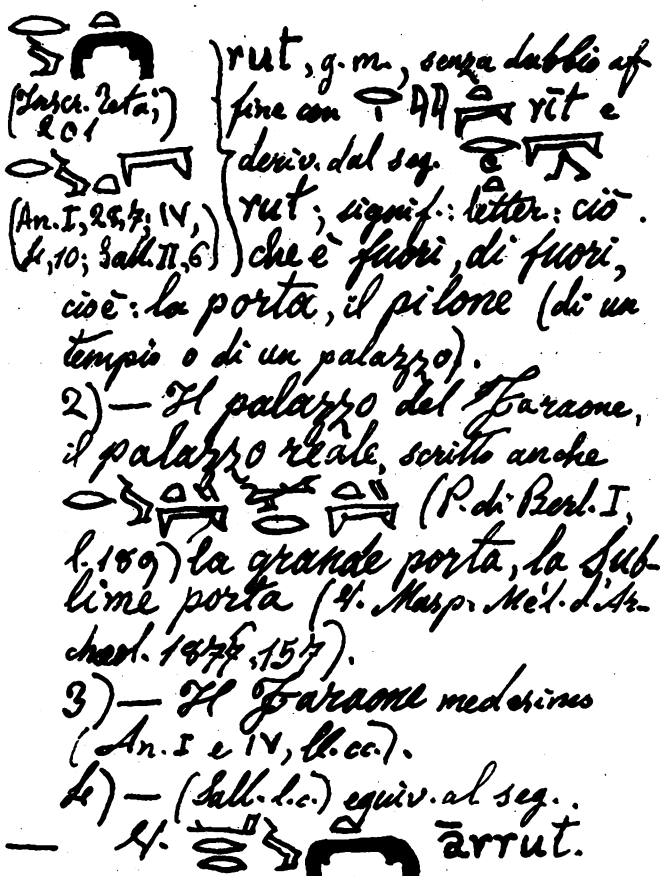 rut, g. m., senza dubbio af-
(Inscr. Zeta; fine con rīt e
201 deriv. dal seg.
(An. I, 28,7; IV, rut; signif.: letter: ciò
4,10; Sall. II, 6) che è fuori, di fuori,
cioè: la porta, il pilone (di un
tempio o di un palazzo).
2)— Il palazzo del Faraone,
il palazzo reale, scritto anche
(P. di Berl. I,
l. 189) la grande porta, la Sub-
lime porta (V. Masp. Mél. d'Ar-
chaeol. 1877, 157).
3)— Il Faraone medesimo
(An. I e IV, ll. cc.).
4)— (Sall. l. c.) equiv. al seg..
— V. ārrut.